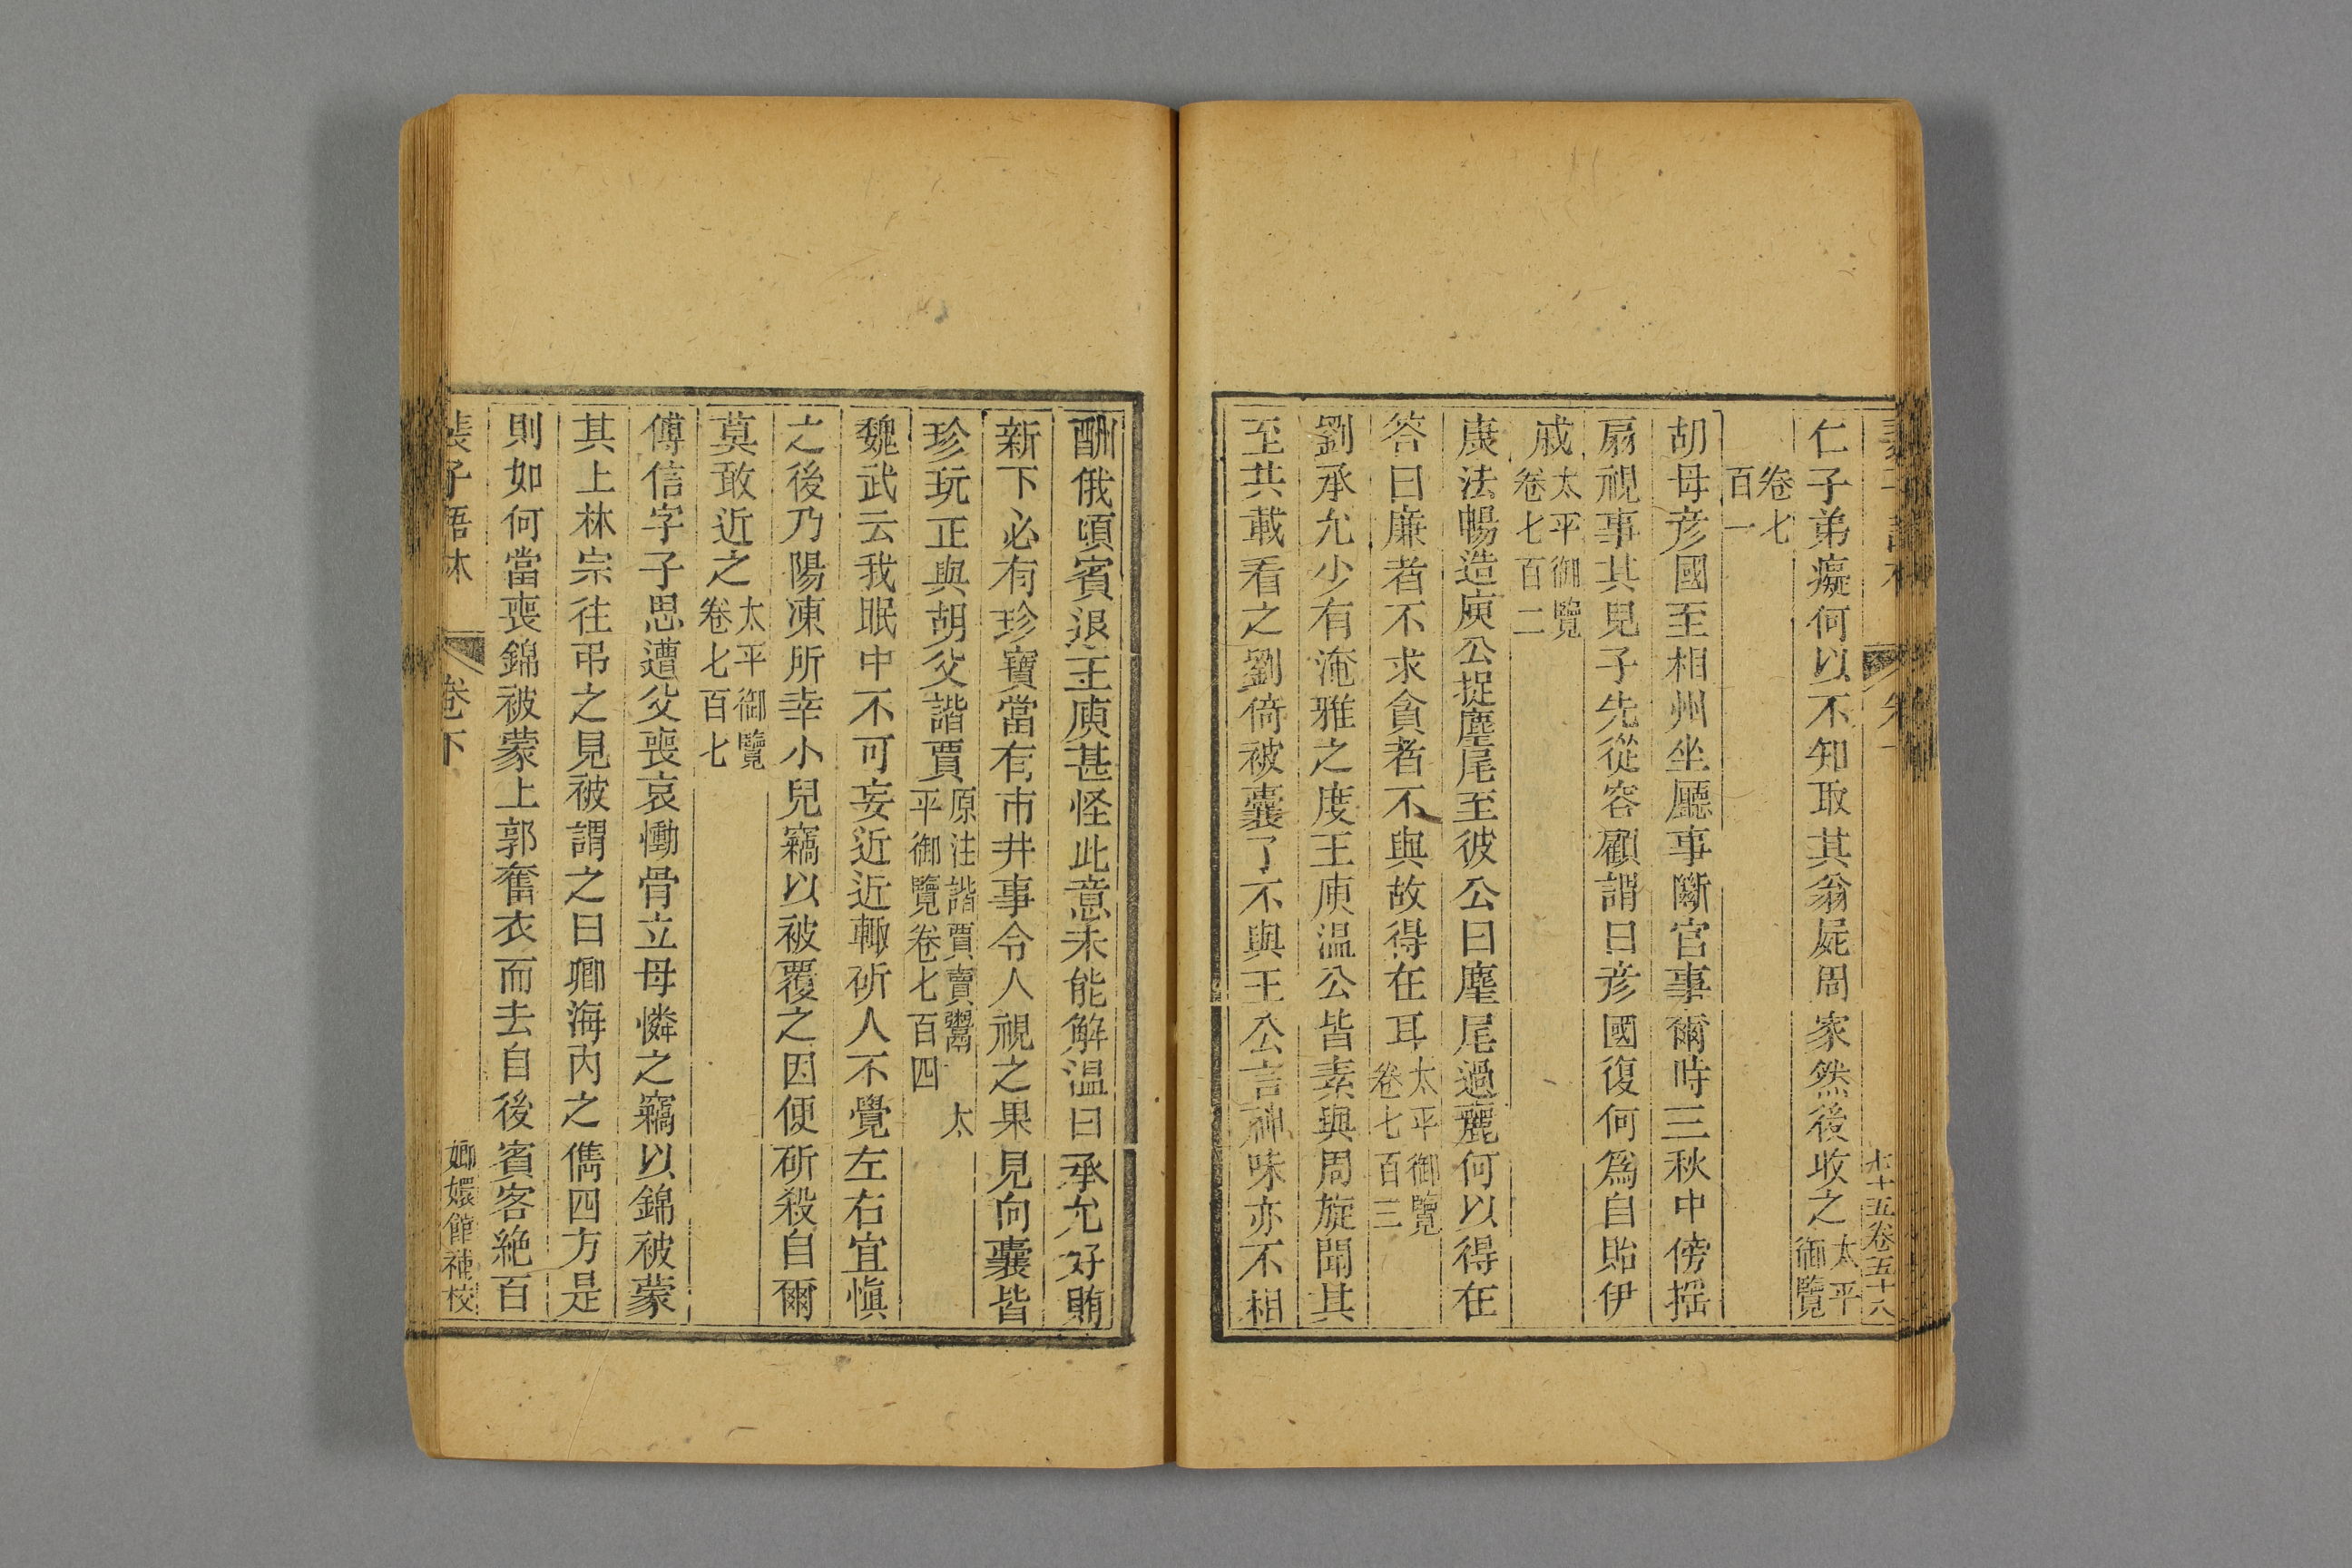 仁子弟癡何以不知取其翁屍周家然後收之太平御覽
卷七百一
胡母彦國至相州坐廳事斷官事爾時三秋中傍搖
扇視事其兒子先從容顧謂曰彦國復何爲自貽伊
戚太平御覽卷七百二
庾法暢造庾公捉麈尾至彼公曰麈尾過麗何以得在
答曰廉者不求貪者不與故得在耳太平御覽卷七百三
劉承允少有淹雅之度王庾温公皆素與周旋聞其
至共載看之劉倚被囊了不與王公言神味亦不相
酬俄頃賓退王庾甚怪此意未能解温曰承允好賄
新下必有珍寶當有市井事令人視之果見向囊皆
珍玩正與胡父諧賈原注諧賈賣鬻　太平御覽卷七百四
魏武云我眠中不可妄近近輒斫人不覺左右宜愼
之後乃陽凍所幸小兒竊以被覆之因便斫殺自爾
莫敢近之太平御覽卷七百七
傅信字子思遭父喪哀慟骨立母憐之竊以錦被蒙
其上林宗往弔之見被謂之曰卿海内之儁四方是
則如何當喪錦被蒙上郭奮衣而去自後賓客絶百
裴子語林　卷下　嫏嬛館補校